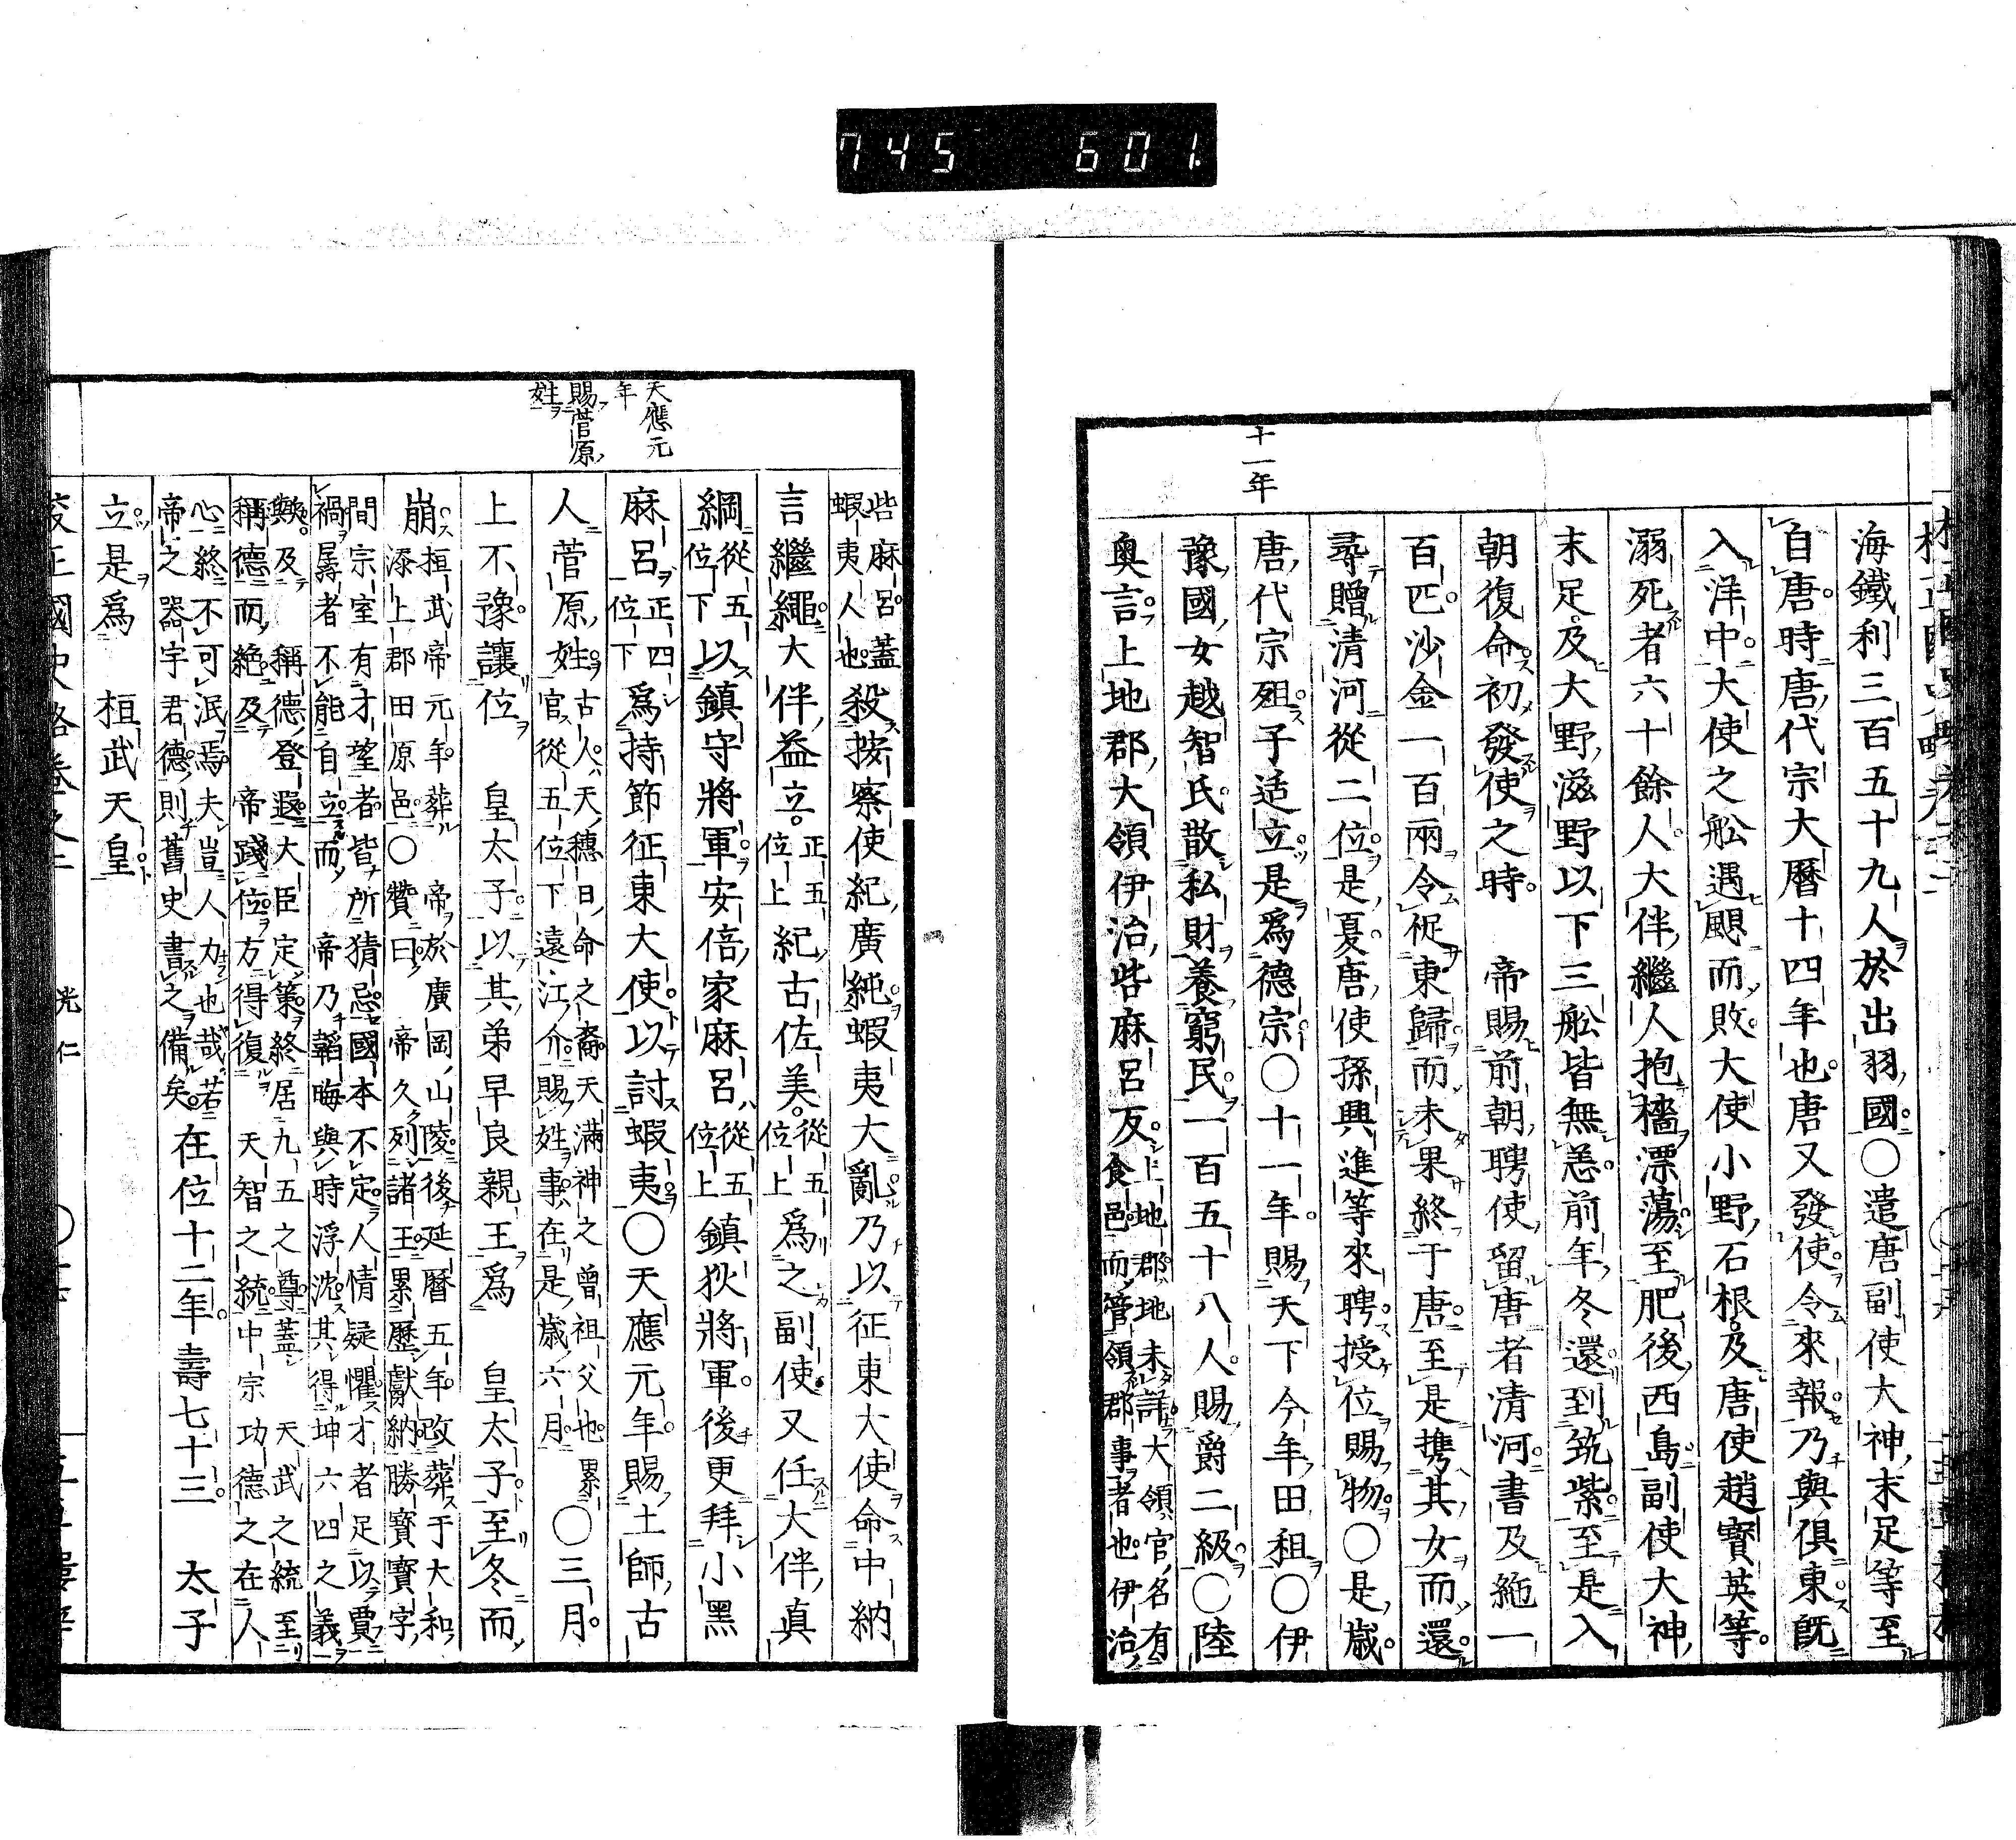 745 601.
十一年
海鐵利三百五十九人於出羽國○遣唐副使大神末足等至
自唐時唐代宗大曆十四年也唐又發使令來報乃與俱東既
入洋中大使之舩遇颶而敗大使小野石根及唐使趙寶英等
溺死者六十餘人大伴繼人抱檣漂蕩至肥後西島副使大神
末足及大野滋野以下三舩皆無恙前年冬還到筑紫至是入
朝復命初發使之時　帝賜前朝聘使留唐者清河書及絁一
百匹沙金一百兩令促東歸而未果終于唐至是携其女而還
尋贈清河從二位是夏唐使孫興進等來聘授位賜物○是歲
唐代宗殂子适立是爲德宗○十一年賜天下今年田租○伊
豫國女越智氏散私財養窮民一百五十八人賜爵二級○陸
奥言上地郡大領伊治呰麻呂反上地郡地未詳大領官名有
食邑而管領郡事者也伊治
天應元
年
賜菅原
姓
呰麻呂蓋
蝦夷人也殺按察使紀廣純蝦夷大亂乃以征東大使命中納
言繼繩大伴益立正五
位上紀古佐美從五
位上爲之副使又任大伴真
綱從五
位下以鎮守將軍安倍家麻呂從五
位上鎮狄將軍後更拜小黑
麻呂正四
位下爲持節征東大使以討蝦夷○天應元年賜土師古
人菅原姓古人天穗日命之裔天滿神之曾祖父也累
官從五位下遠江介賜姓事在是歲六月○三月
上不豫讓位　皇太子以其弟早良親王爲　皇太子至冬而
崩桓武帝元年葬　帝於廣岡山陵後延曆五年改葬于大和
添上郡田原邑○贊曰　帝久列諸王累歷獻納勝寶寶字
間宗室有才望者皆所猜忌國本不定人情疑懼才者足以賈
禍孱者不能自立而　帝乃韜晦與時浮沈其得坤六四之義
歟及　稱德登遐大臣定策終居九五之尊蓋　天武之統至
稱德而絶及　帝踐位方得復　天智之統中宗功德之在人
心終不可泯焉夫豈人力也哉若
帝之器宇君德則舊史書之備矣在位十二年壽七十三　太子
立是爲　桓武天皇
光仁